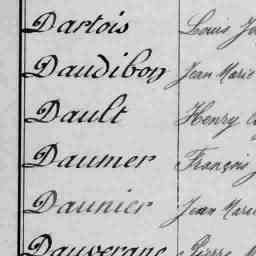 Dartois Louis
Daudibon Jean Marie
Dault Henry
Daumer François
Daunier Jean Marie
Dauvergne Pierre